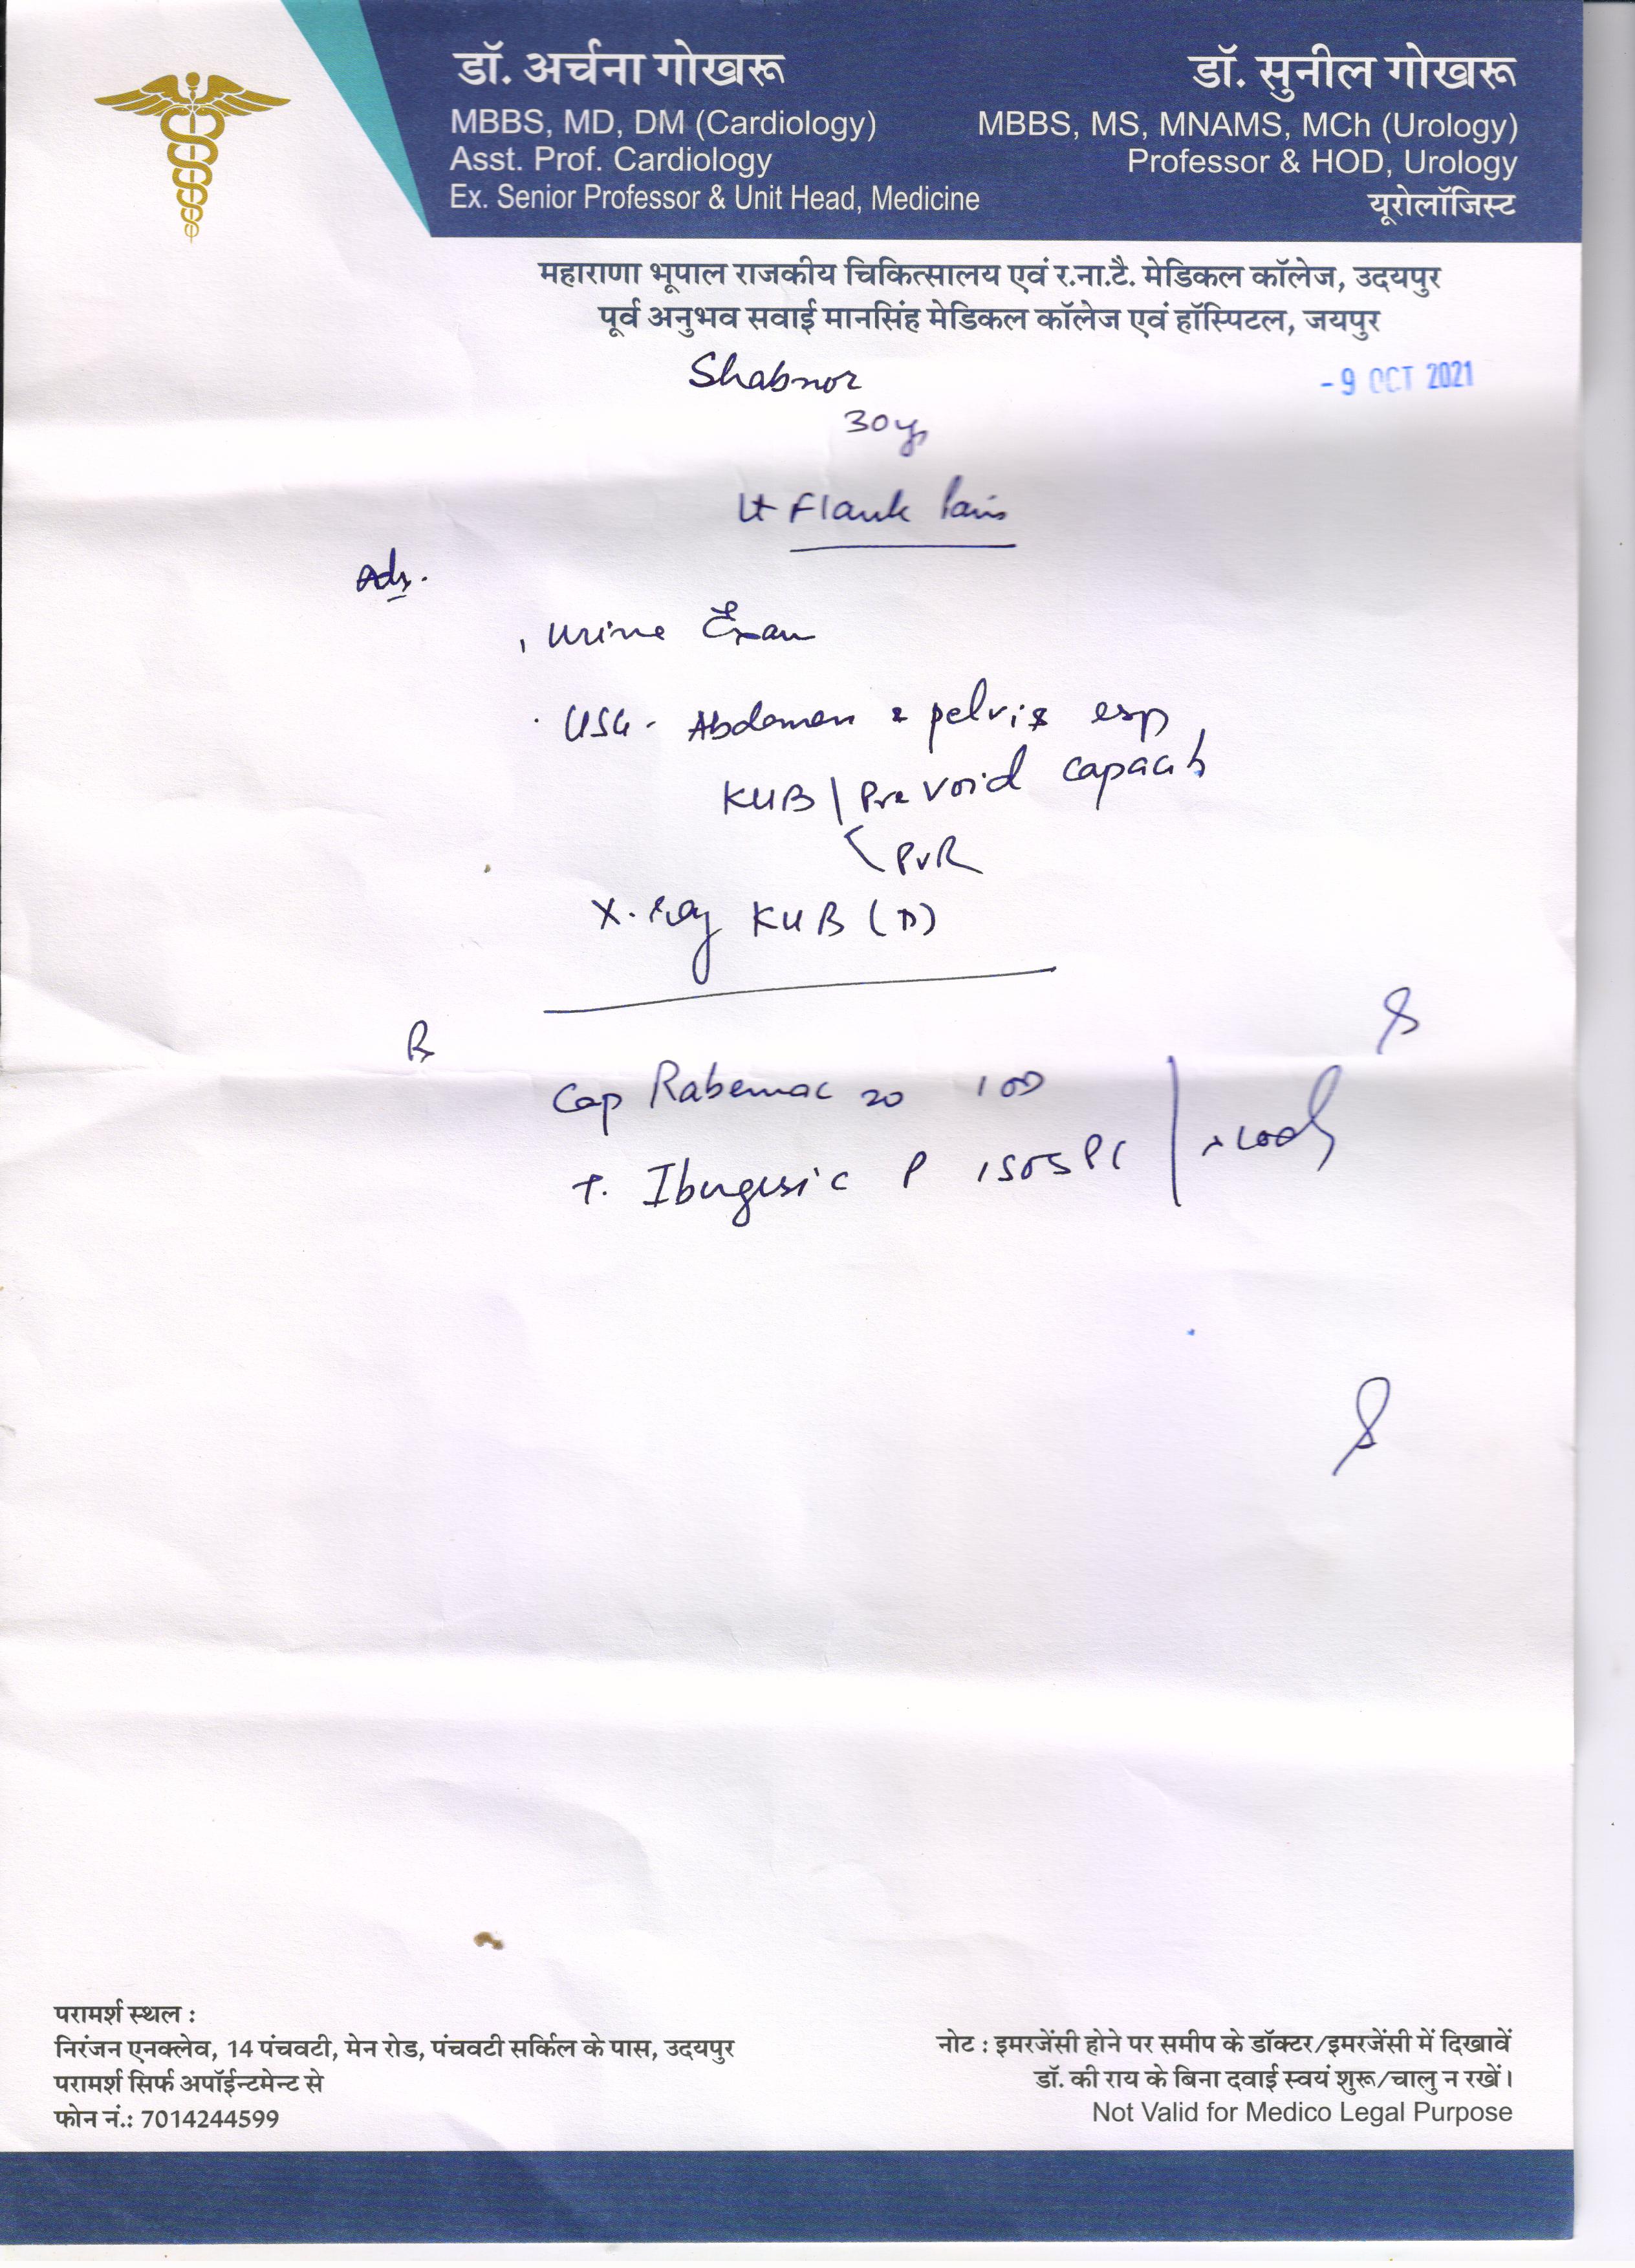 डॉ. अर्चना गोखरू
MBBS, MD, DM (Cardiology)
Asst. Prof. Cardiology
Ex. Senior Professor & Unit Head, Medicine
डॉ. सुनील गोखरू
MBBS, MS, MNAMS, MCh (Urology)
Professor & HOD, Urology
यूरोलॉजिस्ट
महाराणा भूपाल राजकीय चिकित्सालय एवं र.ना.टै. मेडिकल कॉलेज, उदयपुर
पूर्व अनुभव सवाई मानसिंह मेडिकल कॉलेज एवं हॉस्पिटल, जयपुर
- 9 OCT 2021
30y
Lt Flank Pain
Adv.
Urine Exam
USG - Abdomen & pelvis esp
KUB / Pre void capacity
PVR
X-ray KUB
Rx
Cap Rabemac 20 1 OD
T. Ibugesic P 1 SOS PC
परामर्श स्थल :
निरंजन एनक्लेव, 14 पंचवटी, मेन रोड, पंचवटी सर्किल के पास, उदयपुर
परामर्श सिर्फ अपॉईन्टमेन्ट से
फोन नं.: 7014244599
नोट : इमरजेंसी होने पर समीप के डॉक्टर/इमरजेंसी में दिखावें
डॉ. की राय के बिना दवाई स्वयं शुरू/चालु न रखें।
Not Valid for Medico Legal Purpose